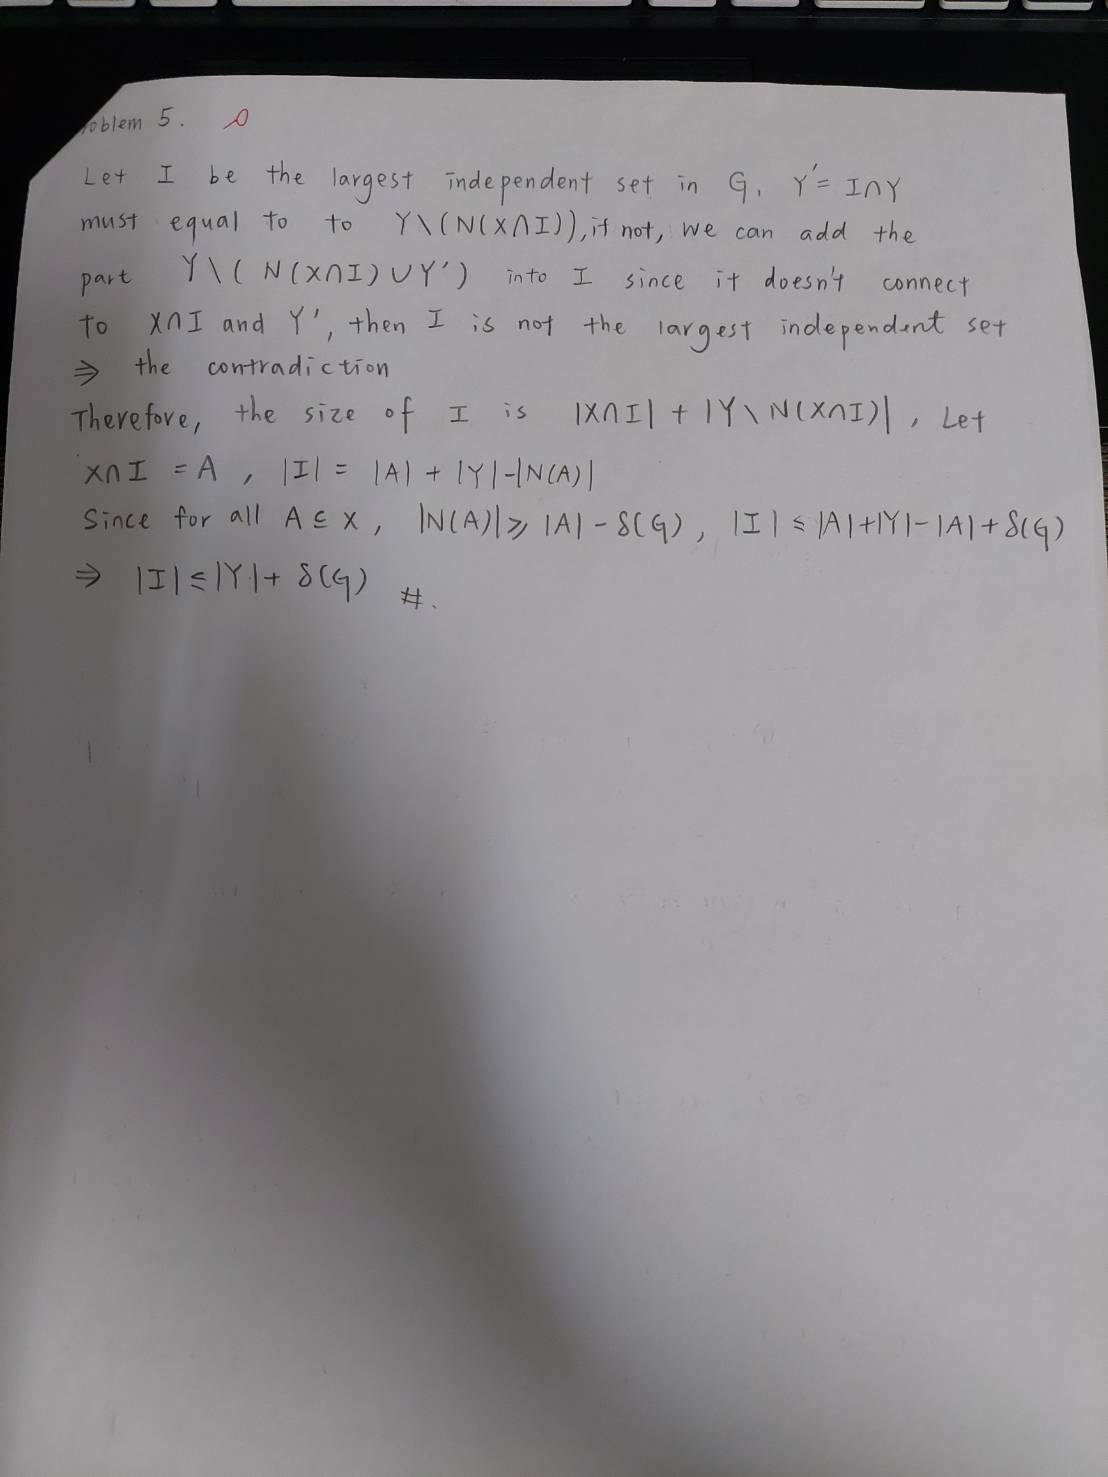 roblem 5.
Let I be the largest independent set in G, Y' = I∩Y
must equal to to Y\(N(X∩I)), if not, we can add the
part Y\(N(X∩I)∪Y') into I since it doesn't connect
to X∩I and Y', then I is not the largest independent set
⇒ the contradiction
Therefore, the size of I is |X∩I| + |Y\N(X∩I)|, Let
X∩I = A, |I| = |A| + |Y|-|N(A)|
Since for all A⊆X, |N(A)| ≥ |A| - δ(G), |I| ≤ |A|+|Y|-|A|+δ(G)
⇒ |I| ≤ |Y| + δ(G) #.